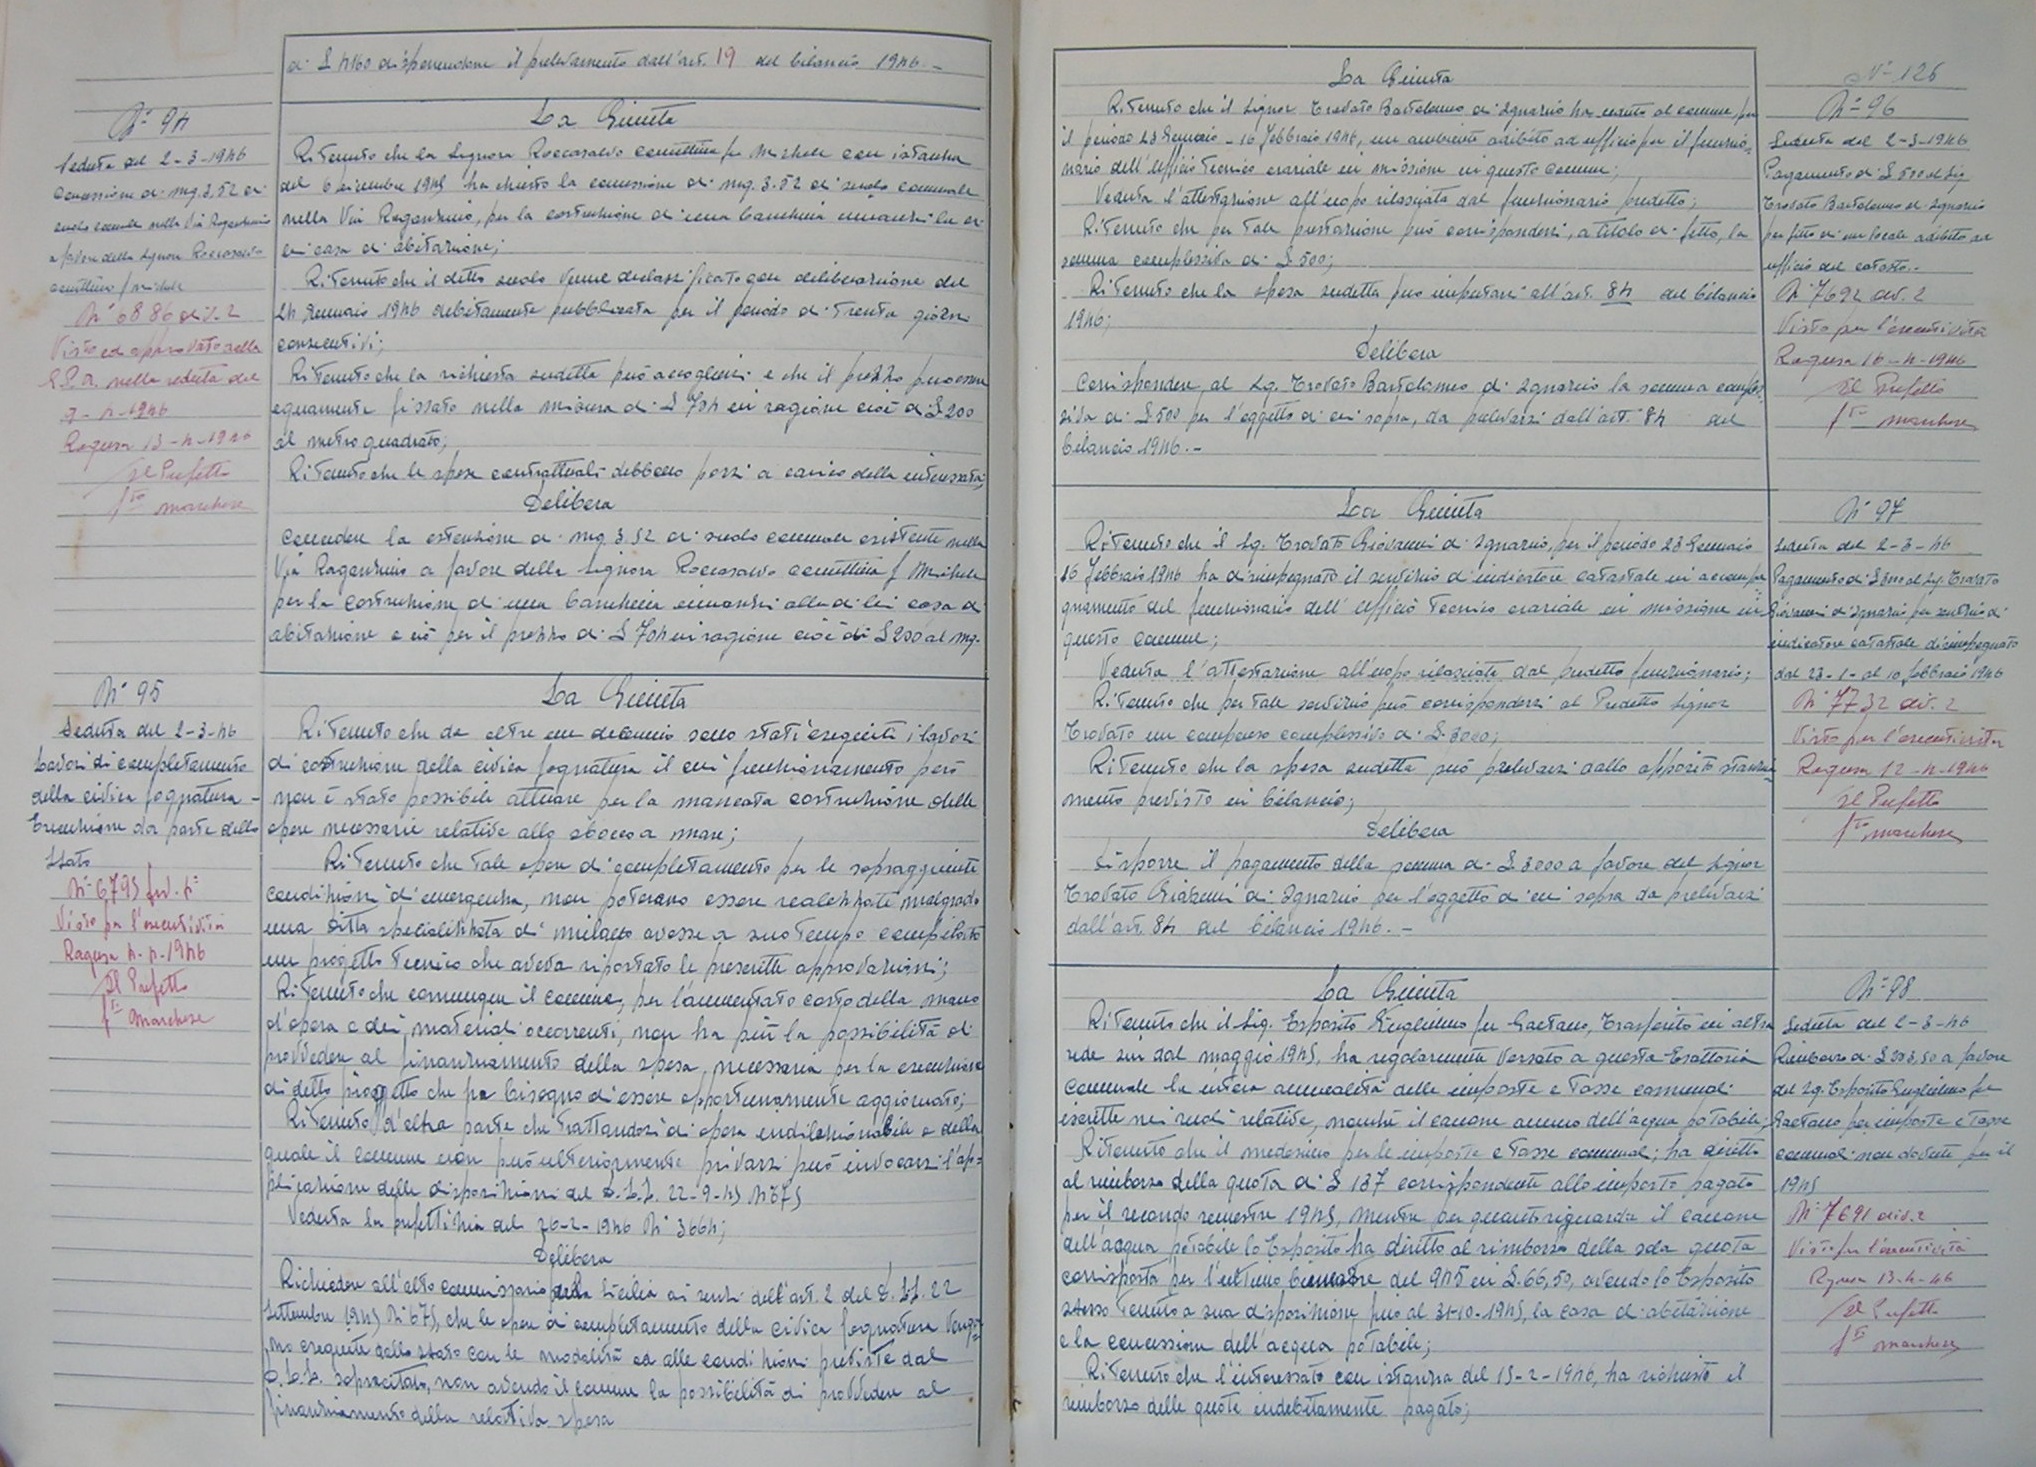 di £ 4160 disponendone il prelevamento dall'art. 19 del bilancio 1946.-
N° 94
Seduta del 2-3-1946
Concessione di mq. 3.52 di
suolo comunale nella Via Roganzino
a favore della Signora Roccasalvo
Carmelina f Michele
N° 6886 div. 2
Visto ed approvato dalla
G.P.A. nella seduta del
1946
Ragusa 13-4-1946
Il Prefetto
f.to Marchese
La Giunta
Ritenuto che la Signora Roccasalvo Carmelina fu Michele con istanza
del 6 dicembre 1945 ha chiesto la concessione di mq. 3.52 di suolo comunale
nella Via Roganzino, per la costruzione di una banchina innanzi la di
lei casa di abitazione;
Ritenuto che il detto suolo venne declassificato con deliberazione del
24 Gennaio 1946 debitamente pubblicata per il periodo di trenta giorni
consecutivi;
Ritenuto che la richiesta sudetta può accogliersi e che il prezzo può essere
equamente fissato nella misura di £ 704 in ragione cioè di £ 200
al metro quadrato;
Ritenuto che le spese contrattuali debbono porsi a carico della interessata;
Delibera
Concedere la estensione di mq 3.52 di suolo comunale esistente nella
Via Roganzino a favore della Signora Roccasalvo Carmelina f Michele
per la costruzione di una banchina innanzi alla di lei casa di
abitazione e ciò per il prezzo di £ 704 in ragione cioè di £ 200 al mq.
N° 95
Seduta del 2-3-46
Lavori di completamento
della civica fognatura -
Esecuzione da parte dello
Stato
N° 6795
Visto per l'esecutività
Ragusa 1946
Il Prefetto
f.to Marchese
La Giunta
Ritenuto che da oltre un decennio sono stati eseguiti i lavori
di costruzione della civica fognatura il cui funzionamento però
non è stato possibile attuare per la mancata costruzione delle
opere necessarie relative allo sbocco a mare;
Ritenuto che tale opere di completamento per le sopraggiunte
condizioni di emergenza, non poterono essere realizzate malgrado
una Ditta specializzata di Milano avesse a suo tempo compilato
un progetto tecnico che aveva riportato le prescritte approvazioni;
Ritenuto che comunque il Comune, per l'aumentato costo della mano
d'opera e dei materiali occorrenti, non ha più la possibilità di
provvedere al finanziamento della spesa necessaria per la esecuzione
di detto progetto che ha bisogno di essere opportunamente aggiornato;
Ritenuto d'altra parte che trattandosi di opera indilazionabile e della
quale il Comune non può ulteriormente privarsi può invocarsi l'ap=
plicazione delle disposizioni del D.L.L. 22-9-45 N° 675
Veduta la prefettizia del 26-2-1946 N° 3664;
Delibera
Richiedere all'alto Commissario della Sicilia ai sensi dell'art. 2 del D.L.L. 22
Settembre 1945 N° 675, che le opere di completamento della civica fognatura venga=
no eseguite dallo Stato con le modalità ed alle condizioni previste dal
D.L.L. sopracitato, non avendo il Comune la possibilità di provvedere al
finanziamento della relativa spesa
N° 126
La Giunta
Ritenuto che il Signor Trovato Bartolomeo di Ignazio ha ceduto al Comune, per
il periodo 23 Gennaio - 10 Febbraio 1946, un ambiente adibito ad ufficio per il funzio=
nario dell'Ufficio Tecnico erariale in missione in questo Comune;
Veduta l'attestazione all'uopo rilasciata dal funzionario predetto;
Ritenuto che per tale prestazione può corrispondersi, a titolo di fitto, la
somma complessiva di £ 500;
Ritenuto che la spesa sudetta può imputarsi all'art. 84 del bilancio
1946;
Delibera
Corrispondere al Sig. Trovato Bartolomeo di Ignazio la somma comples=
siva di £ 500 per l'oggetto di cui sopra, da prelevarsi dall'art. 84 del
bilancio 1946.-
N° 96
Seduta del 2-3-1946
Pagamento di £ 500 al Sig.
Trovato Bartolomeo di Ignazio
per fitto di un locale adibito ad
ufficio del catasto.-
N° 7692 div. 2
Visto per l'esecutività
Ragusa 16-4-1946
Il Prefetto
f.to Marchese
La Giunta
Ritenuto che il Sig. Trovato Giovanni di Ignazio, per il periodo 23 Gennaio
10 Febbraio 1946 ha disimpegnato il servizio d'indicatore catastale in accompa
gnamento del funzionario dell'Ufficio Tecnico erariale in missione in
questo Comune;
Veduta l'attestazione all'uopo rilasciata dal predetto funzionario;
Ritenuto che per tale servizio può corrispondersi al Predetto Signor
Trovato un compenso complessivo di £ 3000;
Ritenuto che la spesa sudetta può prelevarsi dallo apposito stanzia=
mento previsto in bilancio;
Delibera
Disporre il pagamento della somma di £ 3000 a favore del Signor
Trovato Giovanni di Ignazio per l'oggetto di cui sopra da prelevarsi
dall'art. 84 del bilancio 1946.-
N° 97
Seduta del 2-3-46
Pagamento di £ 3000 al Sig. Trovato
Giovanni di Ignazio per servizio di
indicatore catastale disimpegnato
dal 23-1- al 10 febbraio 1946
N° 7732 div. 2
Visto per l'esecutività
Ragusa 12-4-1946
Il Prefetto
f.to Marchese
La Giunta
Ritenuto che il Sig. Esposito Guglielmo fu Gaetano, trasferito in altra
sede sin dal maggio 1945, ha regolarmente versato a questa Esattoria
Comunale la intera annualità delle imposte e tasse comunali
iscritte nei ruoli relative, nonché il canone annuo dell'acqua potabile;
Ritenuto che il medesimo per le imposte e tasse comunali; ha diritto
al rimborso della quota di £ 137 corrispondente allo importo pagato
per il secondo semestre 1945, mentre per quanto riguarda il canone
dell'acqua potabile lo Esposito ha diritto al rimborso della sola quota
corrisposta per l'ultimo bimestre del 945 in £. 66,50, avendo lo Esposito
stesso tenuto a sua disposizione fino al 31-10-1945, la casa di abitazione
e la concessione dell'acqua potabile;
Ritenuto che l'interessato con istanza del 15-2-1946, ha richiesto il
rimborso delle quote indebitamente pagate;
N° 98
Seduta del 2-3-46
Rimborso di £ 203,50 a favore
del Sig. Esposito Guglielmo fu
Gaetano per imposte e tasse
comunali non dovute per il
1945
N° 7691 div. 2
Visto per l'esecutività
Ragusa 13-4-46
Il Prefetto
f.to Marchese